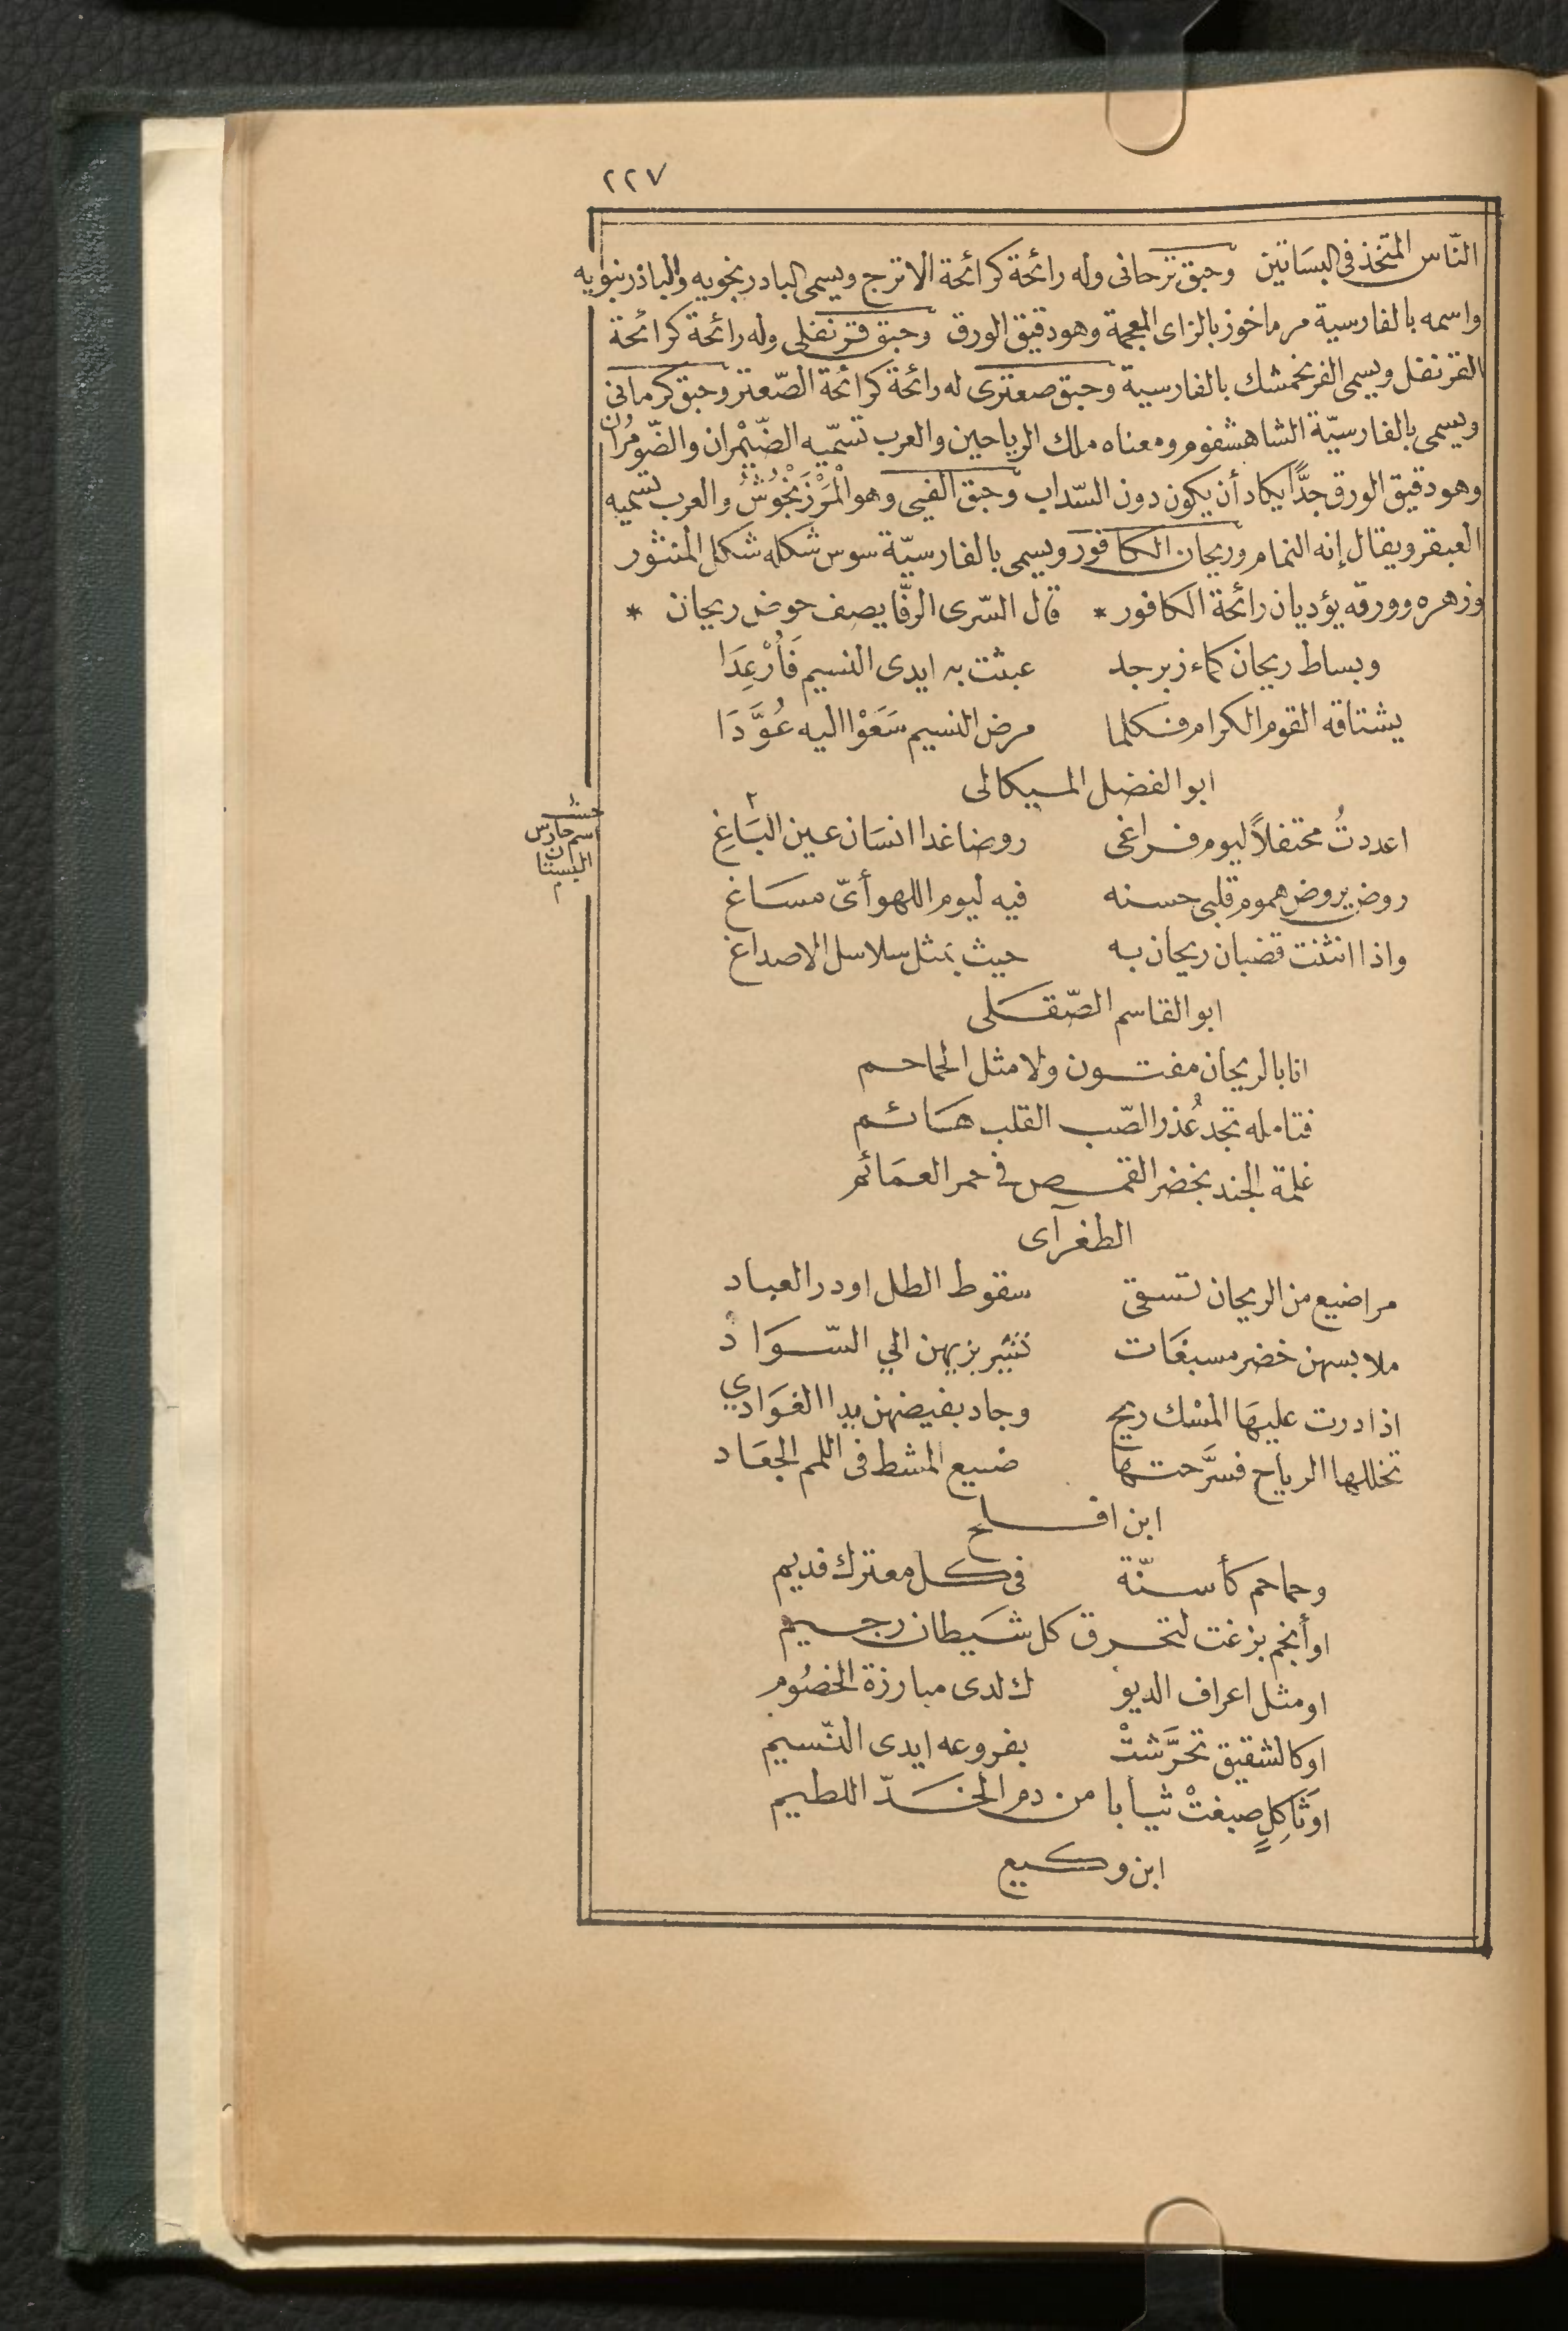 ٢٢٧
النّاس المتخذ فى البسَاتين وحبق ترحانى وله رائحة كرائحة الاترج ويسمى البادرنجويه والباذرنبويه
واسمه بالفارسية مرماخوز بالزاى المعجمة وهو دقيق الورق وحبق قرنفلى وله رائحة كرائحة
القرنفل ويسمى الفرنجمشك بالفارسية وحبق صعترى له رائحة كرائحة الصّعتر وحبق كرمانى
ويسمى بالفارسيّة الشاهشفوم ومعناه ملك الرياحين والعرب تسمّيه الضّيْمران والضّومُران
وهو دقيق الورق جدًّا يكاد أن يكون دون السّداب وحبق الفيى وهو الْمَرْزَنْجُوشُ والعرب تسميه
العبقر ويقال إنه النمام وريحان الكافور ويسمى بالفارسيّة سوس شكله شكل المنثور
وزهره وورقه يؤديان رائحة الكافور * قال السّرى الرفّا يصف حوض ريحان *
وبساط ريحان كماء زبرجد عبثت به ايدى النسيم فَأُرْعِدَا
يشتاقه القوم الكرام فكلما مرض النسيم سَعَوْا اليه عُوَّدَا
ابو الفضل الميكالى
اعددتُ محتفلاً ليوم فراغى روضا غدا انسَان عين البَاغِ ٢
حشـ
اسم حارس
البستان
م
روض يروض هموم قلبى حسنه فيه ليوم اللهو أىّ مسَاغ
واذا انثنت قضبان ريحان به حيث بمثل سلاسل الاصداغ
ابو القاسم الصّقلى
انا بالريحان مفتون ولا مثل الحماحم
فتامله تجد عُذر الصّب القلب هَائم
غلمة الجند بخضر القمص فى حمر العمَائم
الطغرآى
مراضيع من الريحان تسقى سقوط الطل او در العباد
ملابسهن خضر مسبغَات تشير بزيهن الي السّوَاد
اذا درت عليهَا المسْك ريح وجاد بفيضهن يدا الغوَادي
تخللها الرياح فسرَّحتها صنيع المشط فى اللمم الجعَاد
ابن افلح
وحماحم كأسنّة فى كل معترك قديم
او أنجم بزغت لتحرق كل شَيطان رجيم
او مثل اعراف الديو ك لدى مبارزة الخصُوم
او كالشقيق تحرَّشتْ بفروعه ايدى النّسيم
او ثَاكِلٍ صبغتْ ثيابا من دم الخدّ اللطيم
ابن وكيع